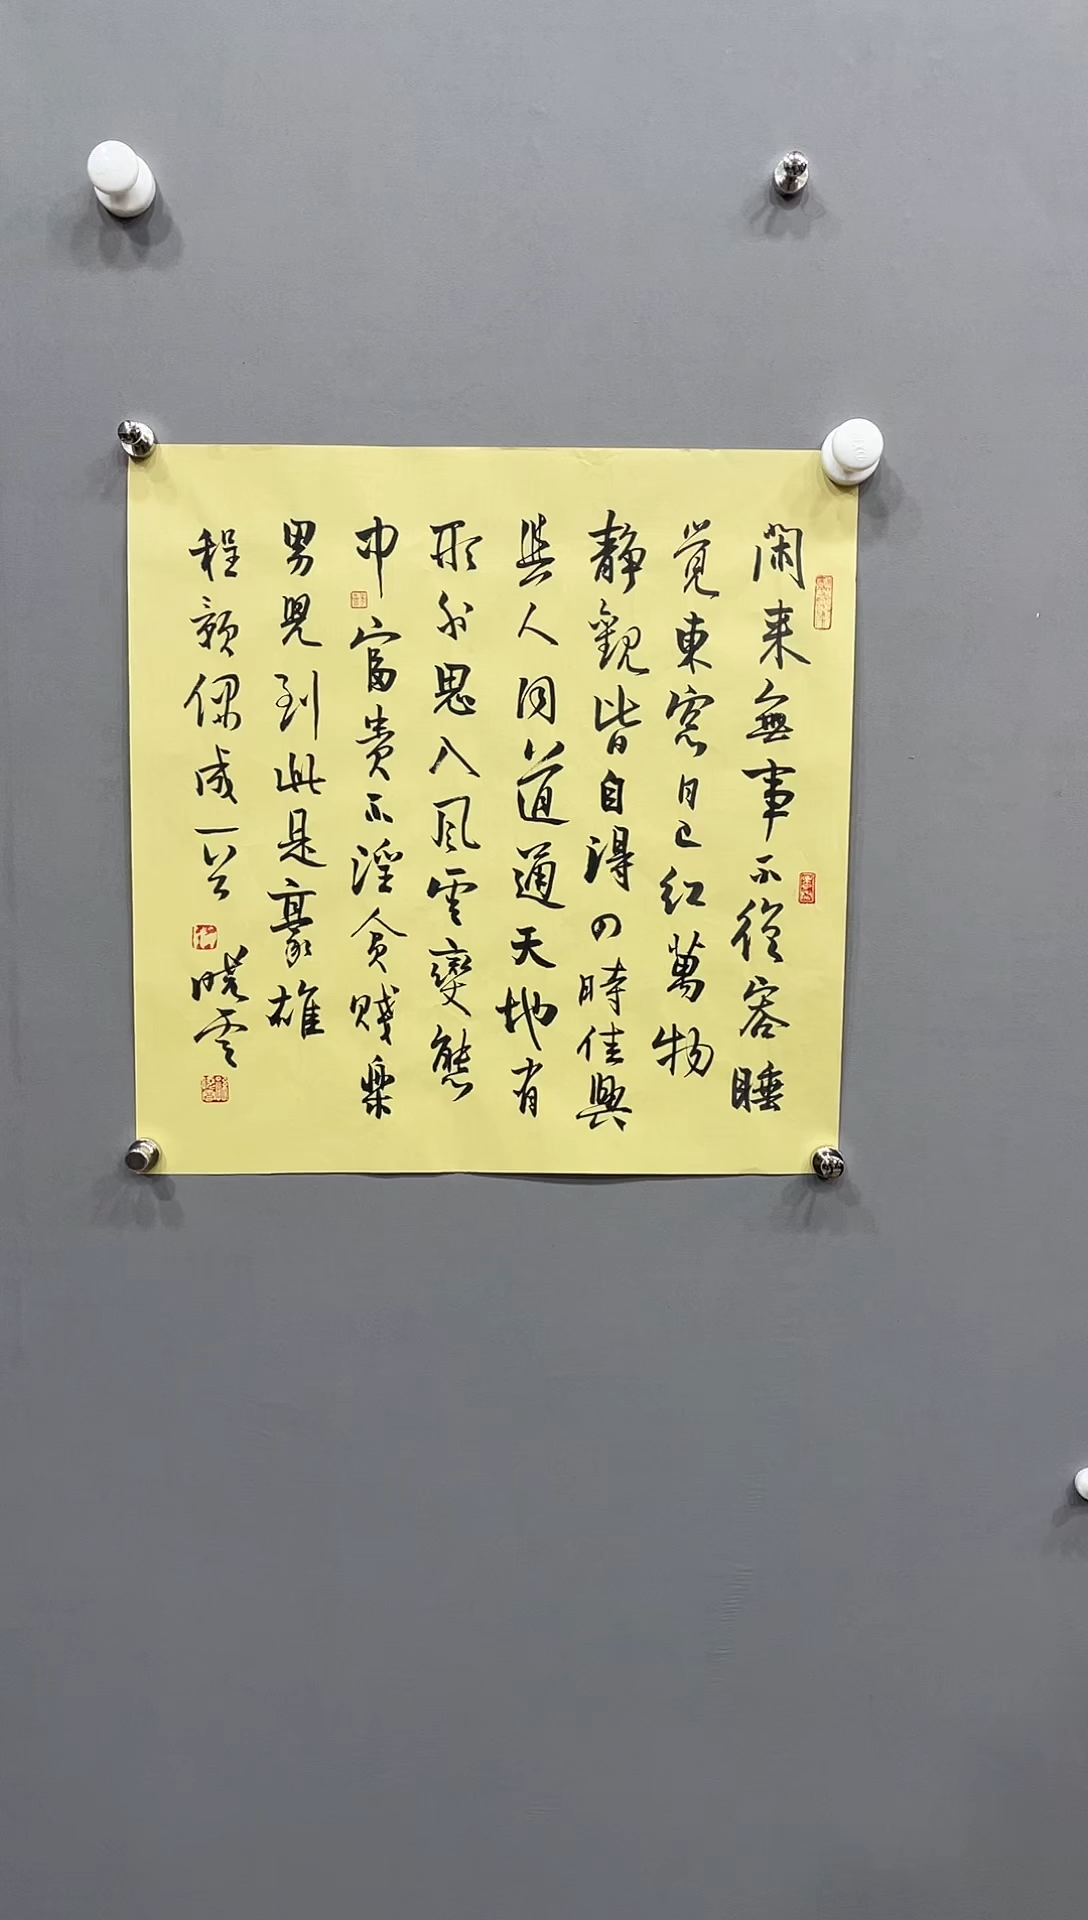 閑来無事不從容睡
覚東窓日已紅萬物
靜觀皆自得四時佳興
與人同道通天地有
形外思入風雲變態
中富貴不淫貧賤樂
男兒到此是豪雄
程顥偶成一首
曉雲